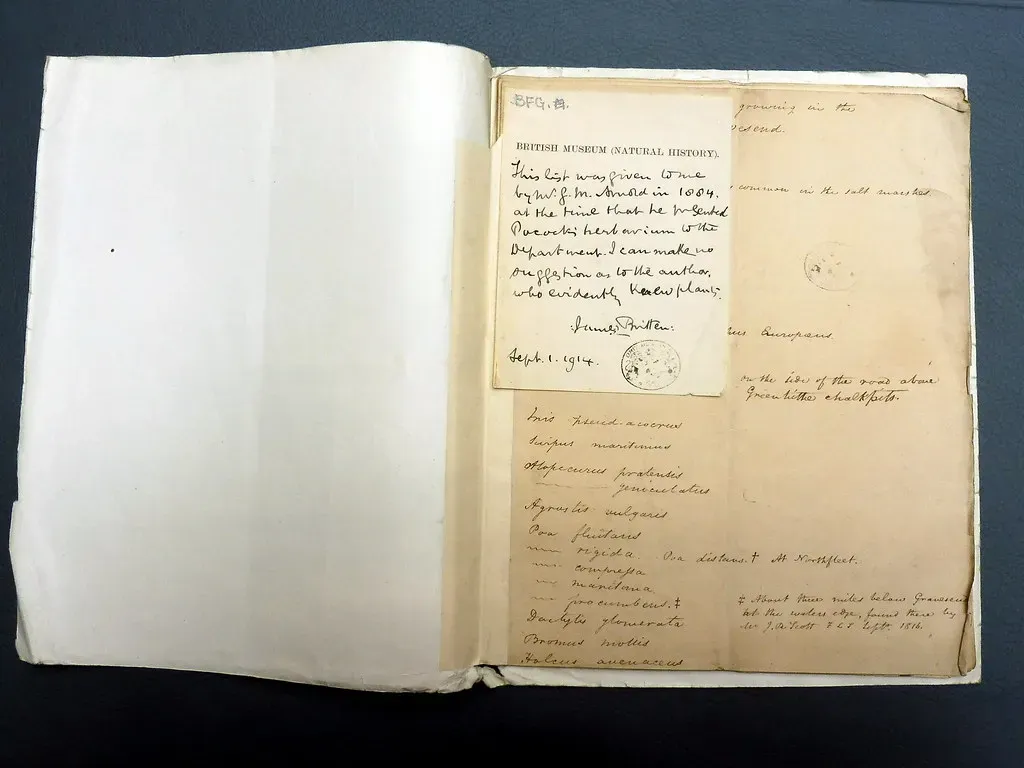 BFG.
BRITISH MUSEUM (NATURAL HISTORY).
This list was given to me
by Mr. G. M. Arnold in 1884,
at the time that he presented
Pocock's herbarium to the
Department. I can make no
suggestion as to the author,
who evidently knew plants.
James Britten:
Sept. 1. 1914.
growing in the
common in the salt marshes.
Europæus.
on the side of the road above
Greenhithe chalkpits.
Iris pseud-acorus
Scirpus maritimus
Alopecurus pratensis
geniculatus
Agrostis vulgaris
Poa fluitans
rigida. Poa distans.† At Northfleet.
compressa
maritima
procumbens.‡
Dactylis glomerata
Bromus mollis
Holcus avenaceus
‡ About three miles below Gravesend
at the waters edge, found there by
Mr J. R. Scott F L S Sept. 1816.